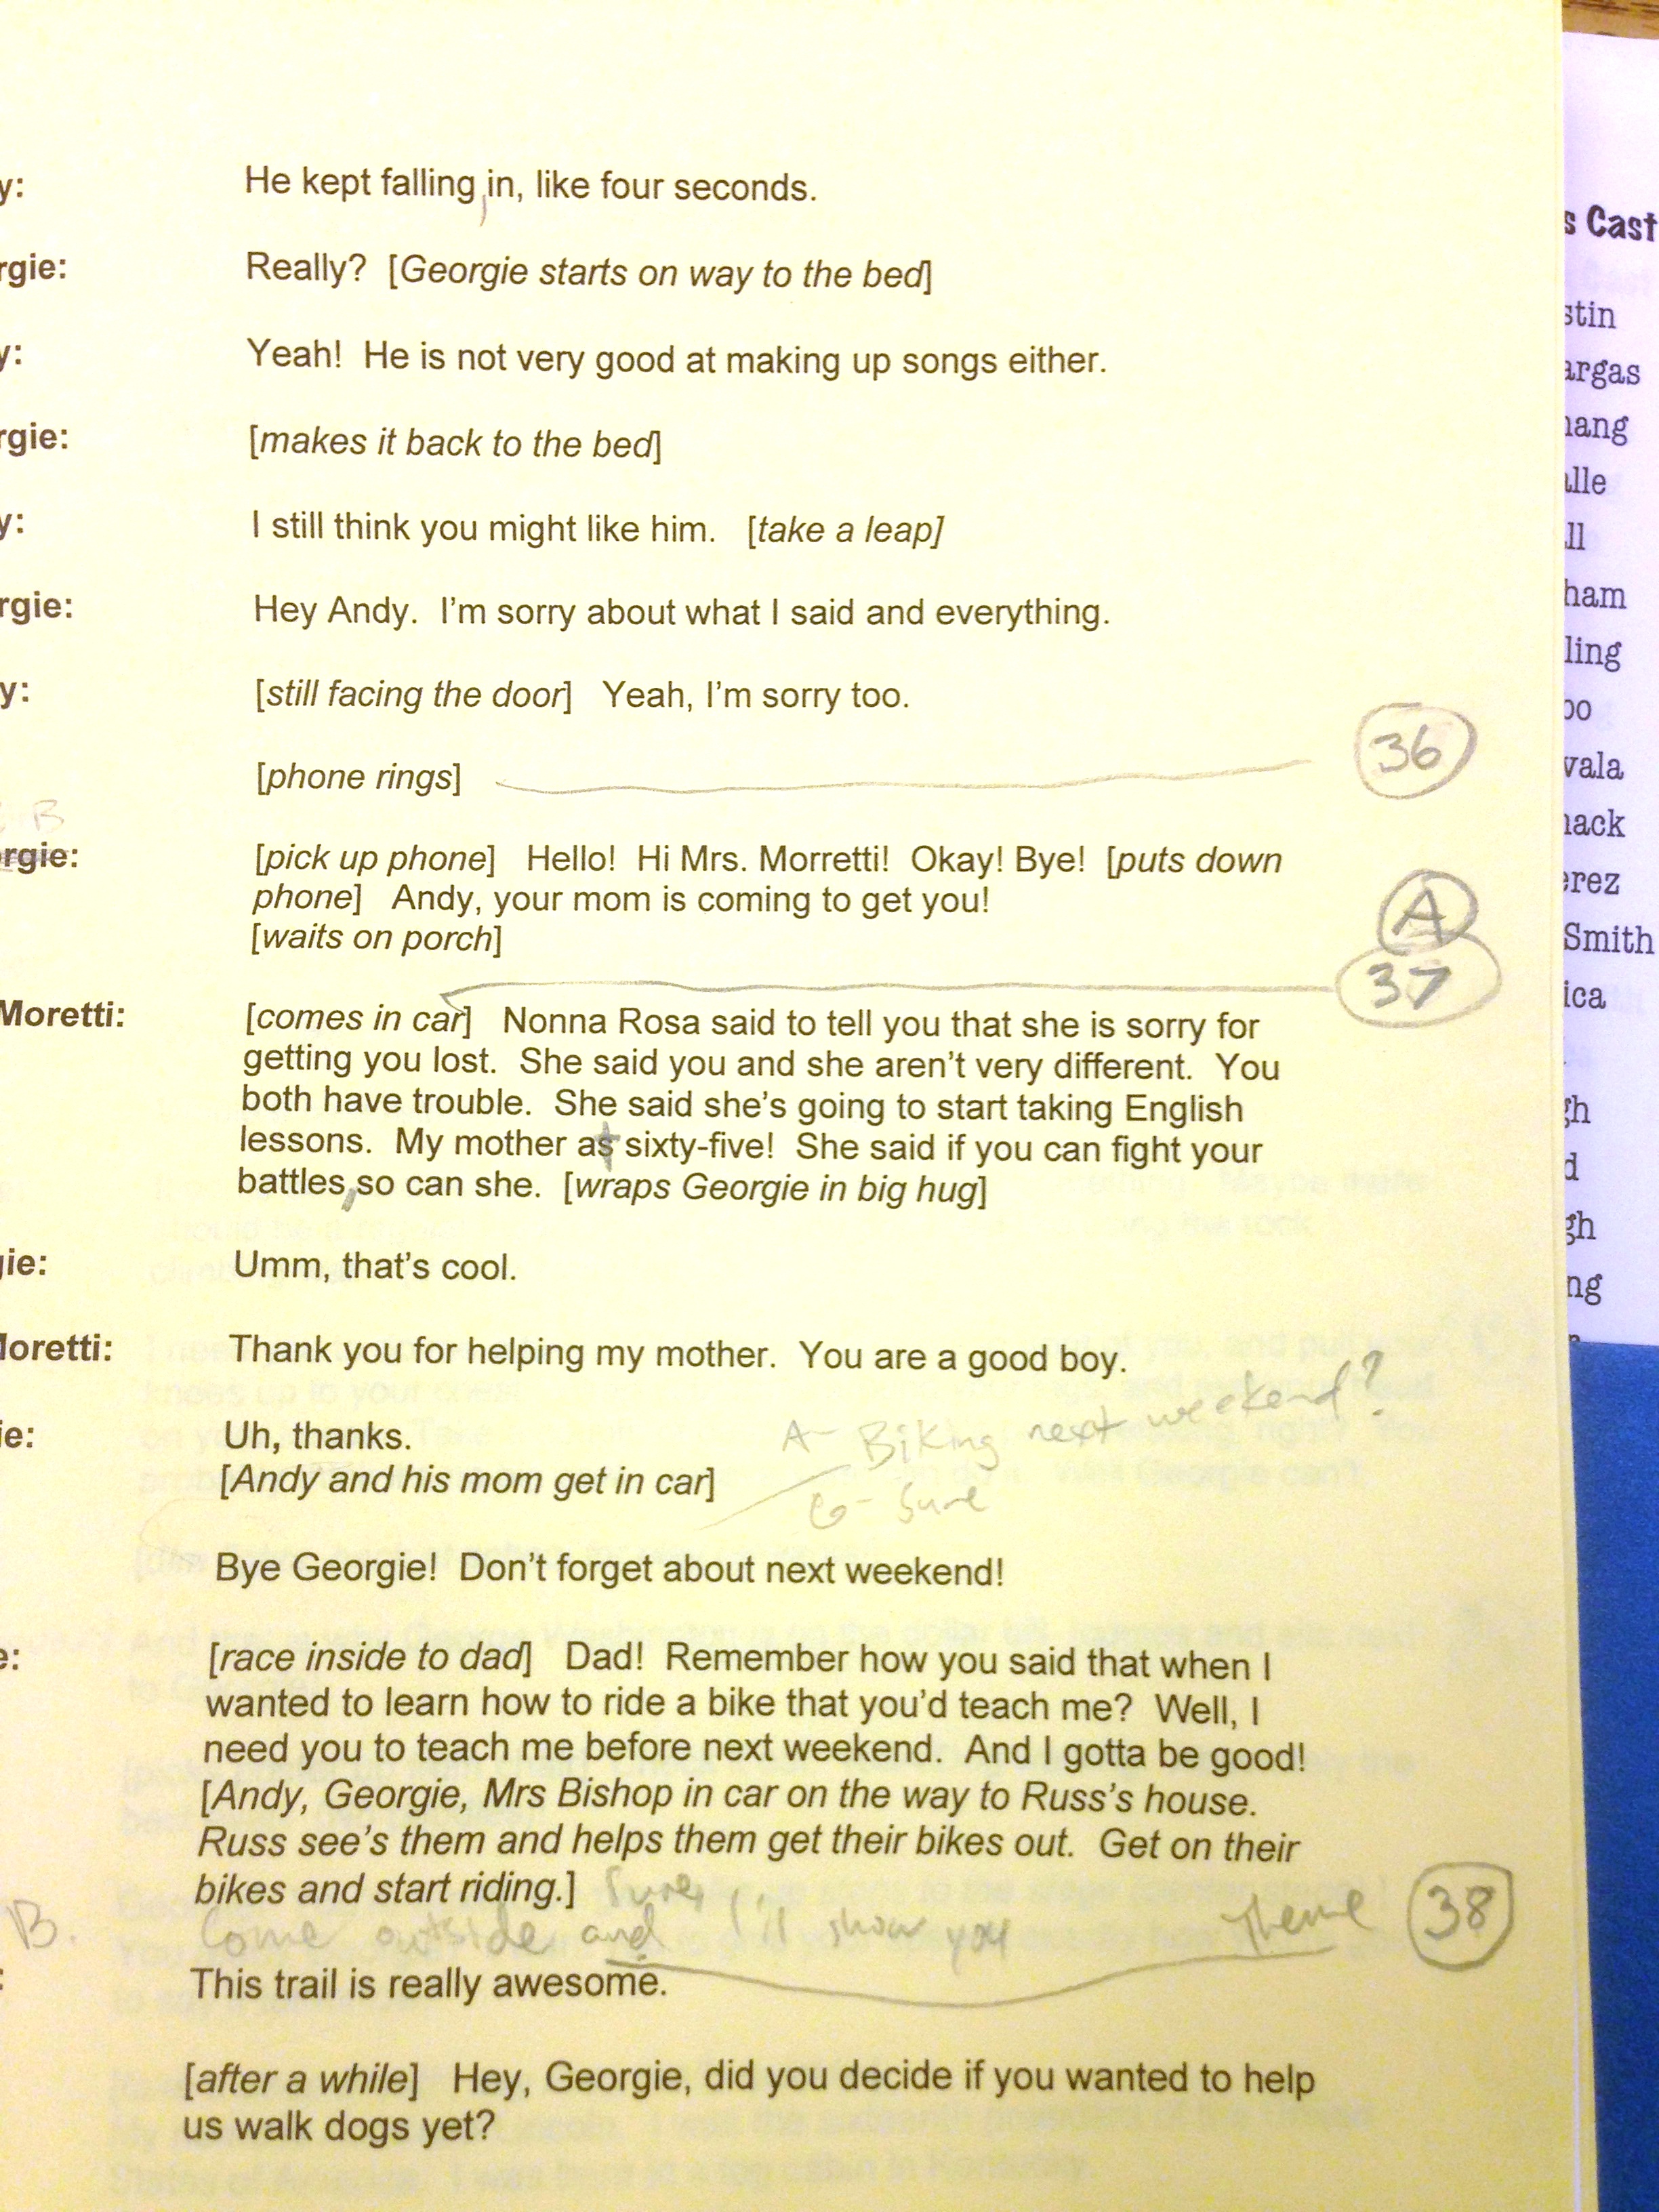 y: He kept falling in, like four seconds.
rgie: Really? [Georgie starts on way to the bed]
y: Yeah! He is not very good at making up songs either.
rgie: [makes it back to the bed]
y: I still think you might like him. [take a leap]
rgie: Hey Andy. I'm sorry about what I said and everything.
y: [still facing the door] Yeah, I'm sorry too.
[phone rings] 36
B
rgie: [pick up phone] Hello! Hi Mrs. Morretti! Okay! Bye! [puts down
phone] Andy, your mom is coming to get you!
[waits on porch]
A
37
Moretti: [comes in car] Nonna Rosa said to tell you that she is sorry for
getting you lost. She said you and she aren't very different. You
both have trouble. She said she's going to start taking English
lessons. My mother as sixty-five! She said if you can fight your
battles, so can she. [wraps Georgie in big hug]
gie: Umm, that's cool.
Moretti: Thank you for helping my mother. You are a good boy.
A- Biking next weekend?
ie: Uh, thanks.
[Andy and his mom get in car]
G- Sure
Bye Georgie! Don't forget about next weekend!
e: [race inside to dad] Dad! Remember how you said that when I
wanted to learn how to ride a bike that you'd teach me? Well, I
need you to teach me before next weekend. And I gotta be good!
[Andy, Georgie, Mrs Bishop in car on the way to Russ's house.
Russ see's them and helps them get their bikes out. Get on their
bikes and start riding.] Sure,
B. Come outside and I'll show you Theme 38
: This trail is really awesome.
[after a while] Hey, Georgie, did you decide if you wanted to help
us walk dogs yet?
s Cast
stin
argas
hang
alle
ll
ham
ling
oo
vala
mack
erez
Smith
ica
gh
d
gh
ng